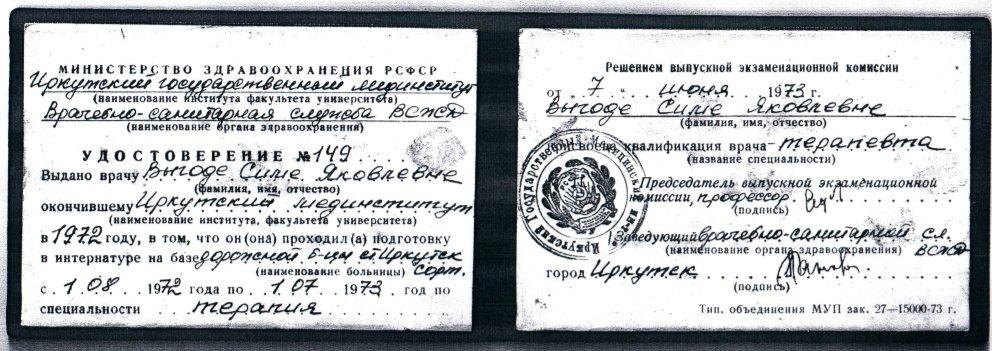 МИНИСТЕРСТВО ЗДРАВООХРАНЕНИЯ РСФСР
Иркутский государственный мединститут
(наименование института факультета университета)
Врачебно-санитарная служба ВСЖД
(наименование органа здравоохранения)
УДОСТОВЕРЕНИЕ №149
Выдано врачу Выгоде Симе Яковлевне
(фамилия, имя, отчество)
окончившему Иркутский мединститут
(наименование института, факультета университета)
в 1972 году, в том, что он (она) проходил(а) подготовку
в интернатуре на базе дорожной б-цы ст. Иркутск
(наименование больницы) Сорт.
с 1.08 1972 года по 1.07 1973 год по
специальности терапия
Решением выпускной экзаменационной комиссии
от 7 июня 1973 г.
Выгоде Симе Яковлевне
(фамилия, имя, отчество)
присвоена квалификация врача-терапевта
(название специальности)
Председатель выпускной экзаменационной
комиссии, профессор
(подпись)
Заведующий врачебно-санитарной сл.
(наименование органа здравоохранения) ВСЖД
город Иркутск
(подпись)
Тип. объединения МУП зак. 27—15000-73 г.